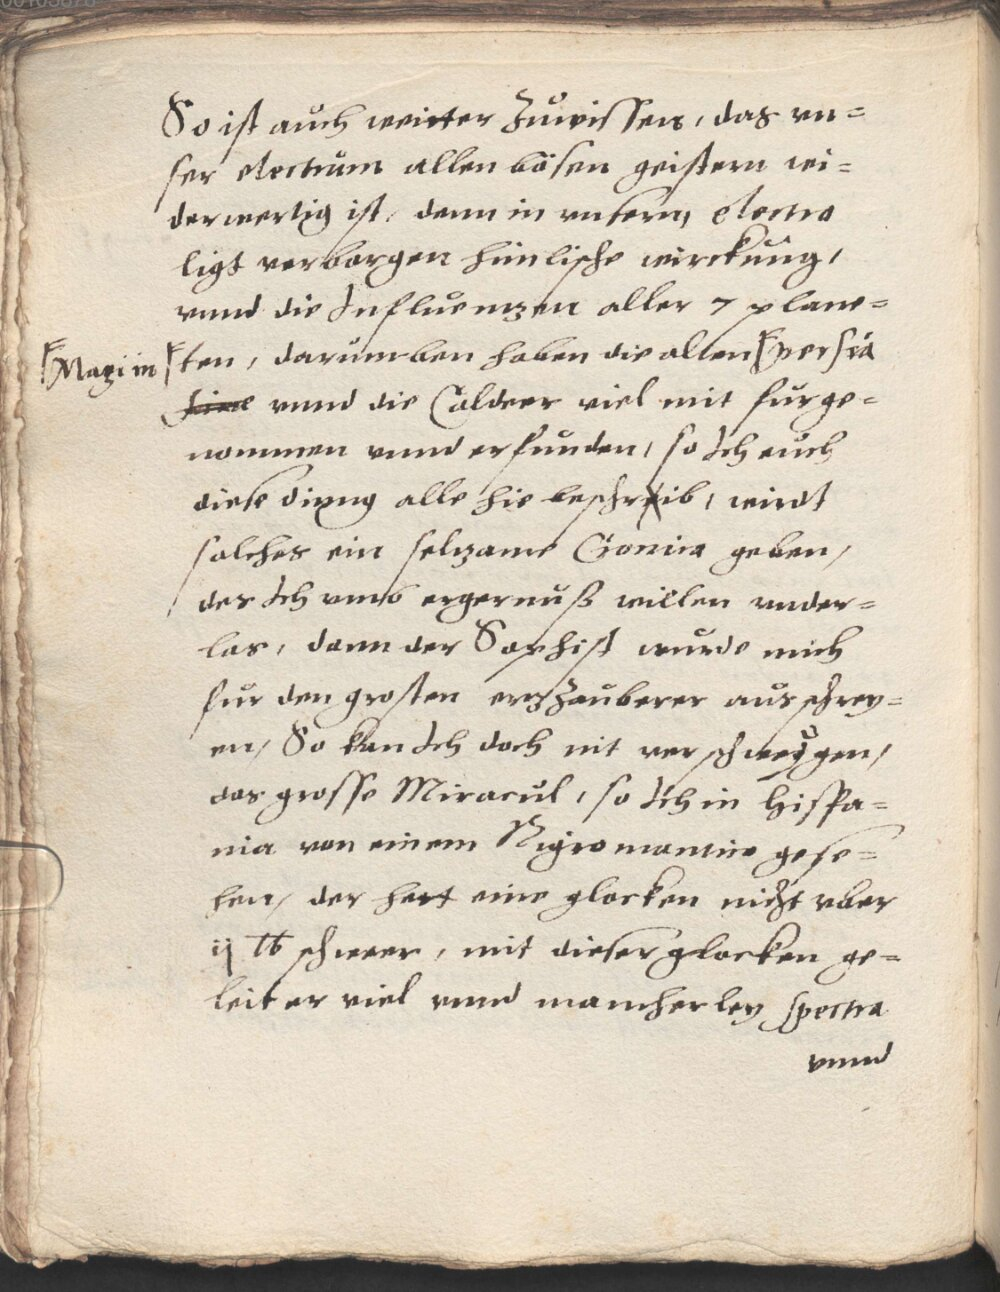 So ist auch weitter Zuwissen, das vn=
ser electrum allen bösen geistern wi=
derwertig ist, denn in vnserm electro
ligt verborgen himlische wirckung,
vnnd die Influentzen aller 7 plane=
Magi in ten, darumben haben die alten persia
vnnd die Caldeer viel mit furge=
nommen vnnd erfunden, so Ich euch
diese ding alle hie beschrib, wirdt
solches ein seltzame Cronica geben,
des Ich vmb ergernuß willen vnder=
las, dann der Sophist wurde mich
fur den grosten ertzZauberer ausschrey=
en, So kan Ich doch nit verschweygen,
das grosse Miracul, so Ich in Hispa=
nia von einem Nigromantico gese=
hen, der hett eine glocken nicht vber
ij lb schweer, mit dieser glocken ge=
leit er viel vnnd mancherley spectra
vnnd